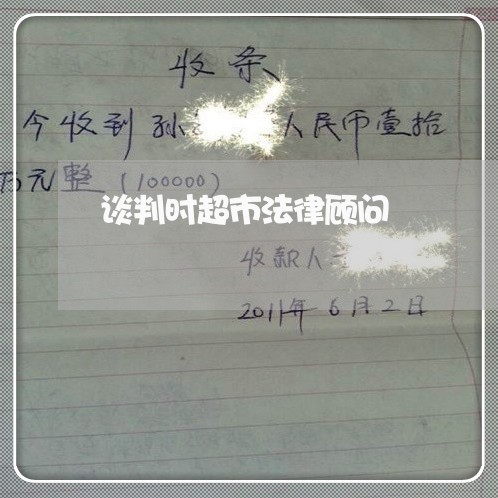 收条
今收到孙 人民币壹拾
万元整（100000）
谈判时超市法律顾问
收款人
2011年6月2日